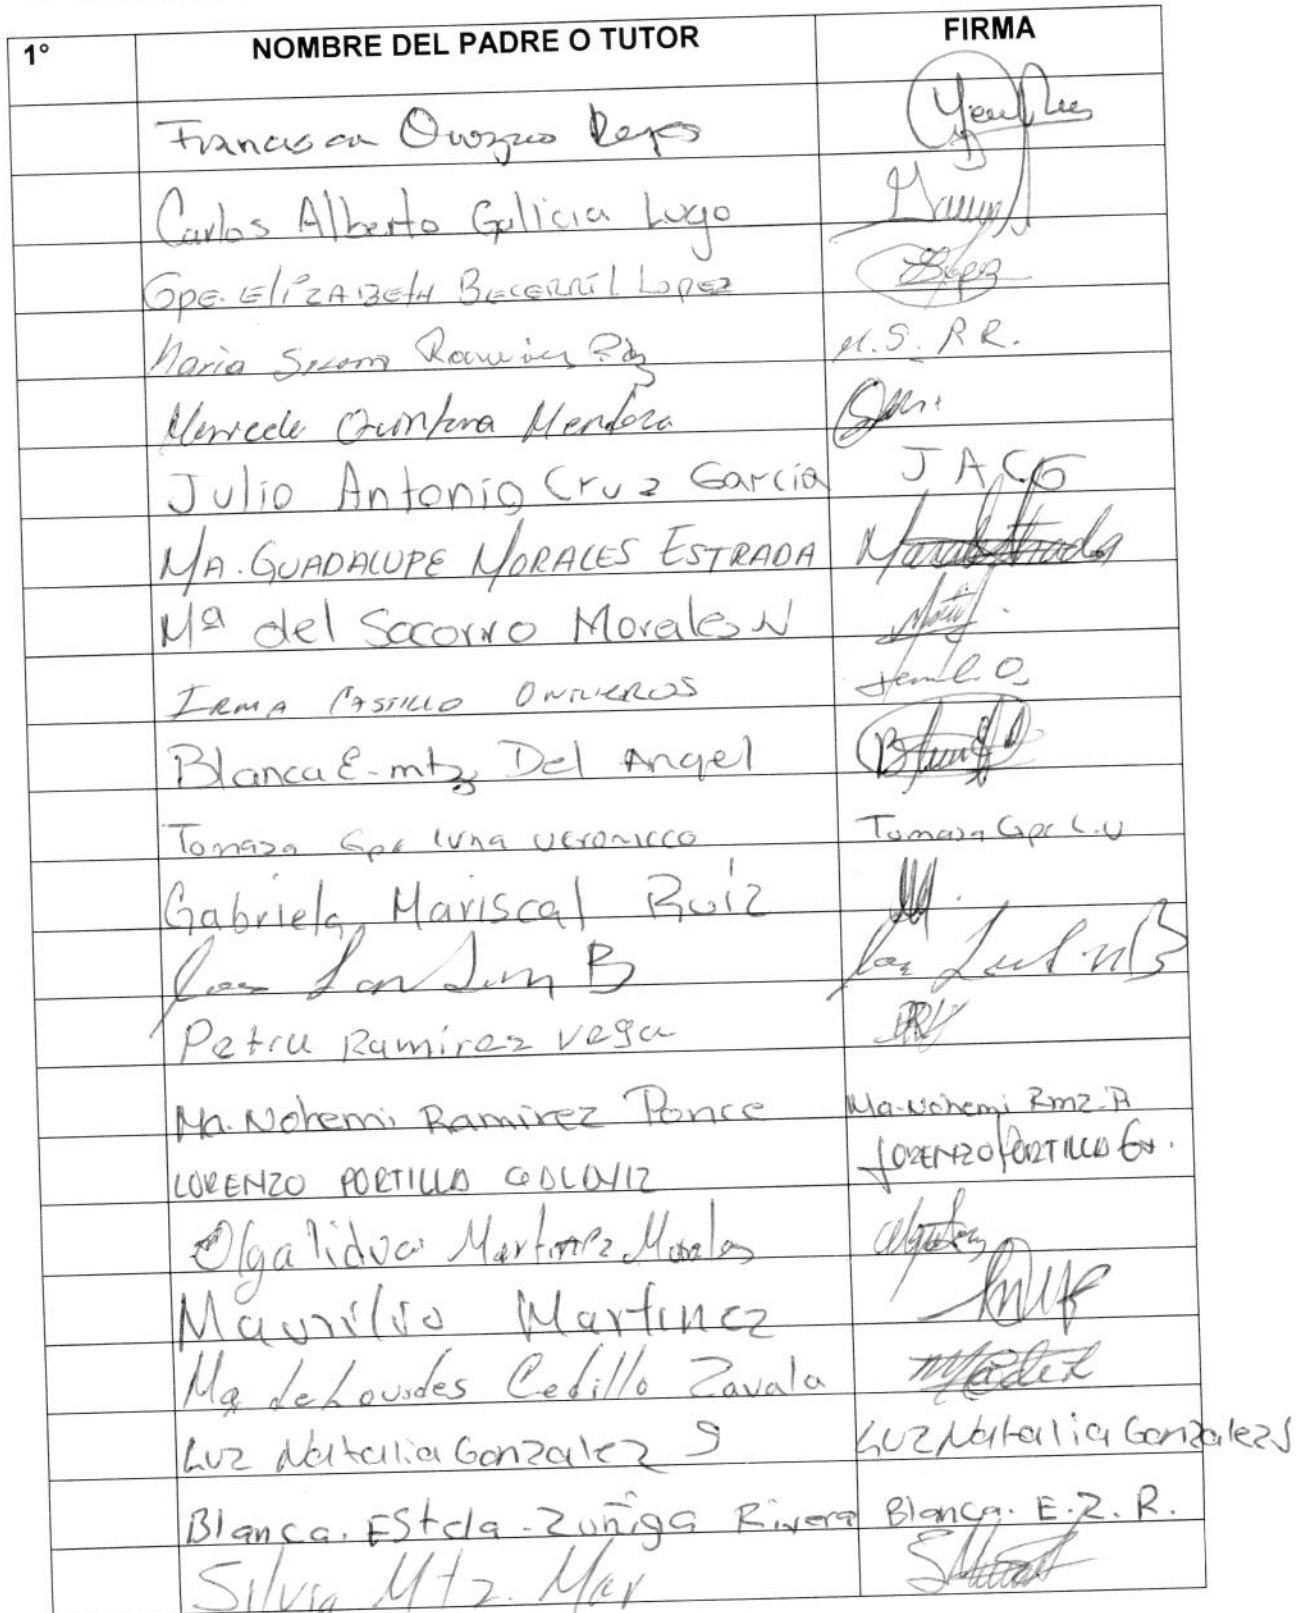 1° NOMBRE DEL PADRE O TUTOR FIRMA
Francisca Orozco Reyes
Carlos Alberto Galicia Lugo
Gpe. ElizABEtH BECERRil Lopez Lopez
Maria Ramirez M.S. R.R.
Mercede Quintana Mendoza
Julio Antonio Cruz Garcia J A C G
MA. GUADALUPE MORALES ESTRADA
Mª del Socorro Morales N
IRMA CASTILLO ONTIVEROS
Blanca E- mtz Del Angel
Tomasa Gpe luna Tomasa Gpe L.V
Gabriela Mariscal Ruíz
B
Petra Ramirez Vega PRV
Ma. Nohemi Ramirez Ponce Ma. Nohemi Rmz. P
LORENZO PORTILLO LORENZO PORTILLO
Olga lidva Martinez Morales
Maurilio Martinez
Ma de Lourdes Cedillo Zavala
Luz Natalia Gonzalez S Luz Natalia Gonzalez S
Blanca. EStela - Zuñiga Rivera Blanca. E. Z. R.
Silvia Mtz. Mar